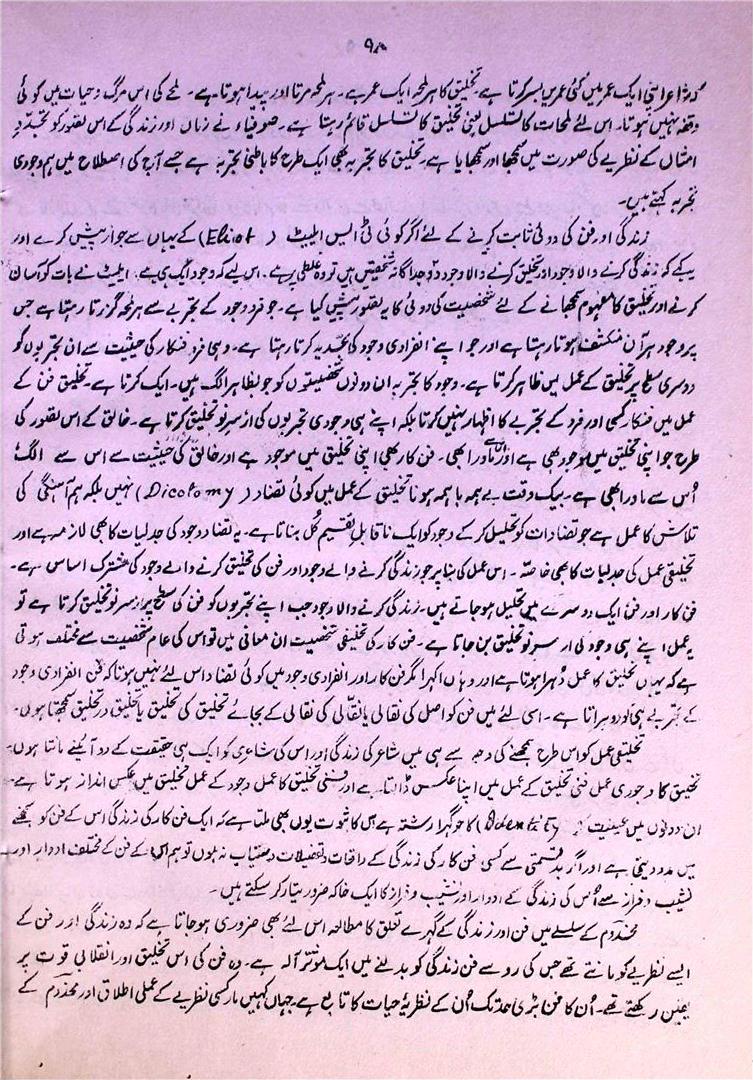 ۹۸
گویا اپنی ایک عمر میں کئی عمریں بسر کرتا ہے۔ تخلیق کا ہر لمحہ ایک عمر ہے۔ ہر لمحہ مرتا اور پیدا ہوتا ہے۔ لمحے کی اس مرگ و حیات میں کوئی
وقفہ نہیں ہوتا۔ اس لئے لمحات کا تسلسل یعنی تخلیق کا تسلسل قائم رہتا ہے۔ صوفیاء نے زماں اور زندگی کے اس تصور کو تجددِ
امثال کے نظریے کی صورت میں سمجھا اور سمجھایا ہے۔ تخلیق کا تجربہ بھی ایک طرح کا باطنی تجربہ ہے جسے آج کی اصطلاح میں ہم وجودی
تجربہ کہتے ہیں۔
زندگی اور فن کی دوئی ثابت کرنے کے لئے اگر کوئی ٹی ایس ایلیٹ (Eliot) کے یہاں سے جواز پیش کرے اور
یہ کہے کہ زندگی کرنے والا وجود اور تخلیق کرنے والا وجود دو جداگانہ شخصیتیں ہیں تو وہ غلطی پر ہے۔ اس لیے کہ وجود ایک ہی ہے۔ ایلیٹ نے بات کو آسان
کرنے اور تخلیق کا مفہوم سمجھانے کے لئے شخصیت کی دوئی کا یہ تصور پیش کیا ہے۔ جو فرد وجود کے تجربے سے ہر لمحہ گزرتا رہتا ہے جس
پر وجود ہر آن منکشف ہوتا رہتا ہے اور جو اپنے انفرادی وجود کی تجدید کرتا رہتا ہے۔ وہی فرد فنکار کی حیثیت سے ان تجربوں کو
دوسری سطح پر تخلیق کے عمل میں ظاہر کرتا ہے۔ وجود کا تجربہ ان دونوں شخصیتوں کو جو بظاہر الگ ہیں۔ ایک کرتا ہے۔ تخلیق فن کے
عمل میں فنکار کسی اور فرد کے تجربے کا اظہار نہیں کرتا بلکہ اپنے ہی وجودی تجربوں کی از سرِ نو تخلیق کرتا ہے۔ خالق کے اس تصور کی
طرح جو اپنی تخلیق میں موجود بھی ہے اور اس سے ماورا بھی۔ فن کار بھی اپنی تخلیق میں موجود ہے اور خالق کی حیثیت سے اس سے الگ
اُس سے ماورا بھی ہے۔ بیک وقت بے ہمہ با ہمہ ہونا تخلیق کے عمل میں کوئی تضاد (Dicotomy) نہیں بلکہ ہم آہنگی کی
تلاش کا عمل ہے جو تضادات کو تحلیل کر کے وجود کو ایک ناقابلِ تقسیم کُل بناتا ہے۔ یہ تضاد وجود کی جدلیات کا بھی لازمہ ہے اور
تخلیقی عمل کی جدلیات کا بھی خاصّہ۔ اس عمل کی بنا پر جو زندگی کرنے والے وجود اور فن کی تخلیق کرنے والے وجود کی مشترک اساس ہے۔
فن کار اور فن ایک دوسرے میں تحلیل ہو جاتے ہیں۔ زندگی کرنے والا وجود جب اپنے تجربوں کو فن کی سطح پر از سرِ نو تخلیق کرتا ہے تو
یہ عمل اپنے ہی وجود کی از سرِ نو تخلیق بن جاتا ہے۔ فن کار کی تخلیقی شخصیت ان معانی میں تو اس کی عام شخصیت سے مختلف ہوتی
ہے کہ یہاں تخلیق کا عمل دُہرا ہوتا ہے اور وہاں اکہرا مگر فن کار اور انفرادی وجود میں کوئی تضاد اس لئے نہیں ہوتا کہ فن انفرادی وجود
کے تجربے ہی کو دوہراتا ہے۔ اسی لئے میں فن کو اصل کی نقالی یا نقالی کی نقالی کے بجائے تخلیق کی تخلیق یا تخلیق در تخلیق سمجھتا ہوں۔
تخلیقی عمل کو اس طرح سمجھنے کی وجہ سے ہی میں شاعر کی زندگی اور اس کی شاعری کو ایک ہی حقیقت کے دو آئینے مانتا ہوں۔
تخلیق کا وجودی عمل فنی تخلیق کے عمل میں اپنا عکس ڈالتا ہے اور فنی تخلیق کا عمل وجود کے عمل تخلیق میں عکس انداز ہوتا ہے۔
ان دونوں میں عینیت (Identity) کا جو گہرا رشتہ ہے اس کا ثبوت یوں بھی ملتا ہے کہ ایک فن کار کی زندگی اس کے فن کو سمجھنے
میں مدد دیتی ہے اور اگر بدقسمتی سے کسی فن کار کی زندگی کے واقعات و تفصیلات دستیاب نہ ہوں تو ہم اس کے فن کے مختلف ادوار اور
نشیب و فراز سے اُس کی زندگی کے ادوار اور نشیب و فراز کا ایک خاکہ ضرور تیار کر سکتے ہیں۔
مخدوم کے سلسلے میں فن اور زندگی کے گہرے تعلق کا مطالعہ اس لئے بھی ضروری ہو جاتا ہے کہ وہ زندگی اور فن کے
ایسے نظریے کو مانتے تھے جس کی رو سے فن زندگی کو بدلنے میں ایک موثر آلہ ہے۔ وہ فن کی اس تخلیق اور انقلابی قوت پر
یقین رکھتے تھے۔ اُن کا فن بڑی حد تک اُن کے نظریۂ حیات کا تابع ہے جہاں کہیں مارکسی نظریے کے عملی اطلاق اور مخدوم کے